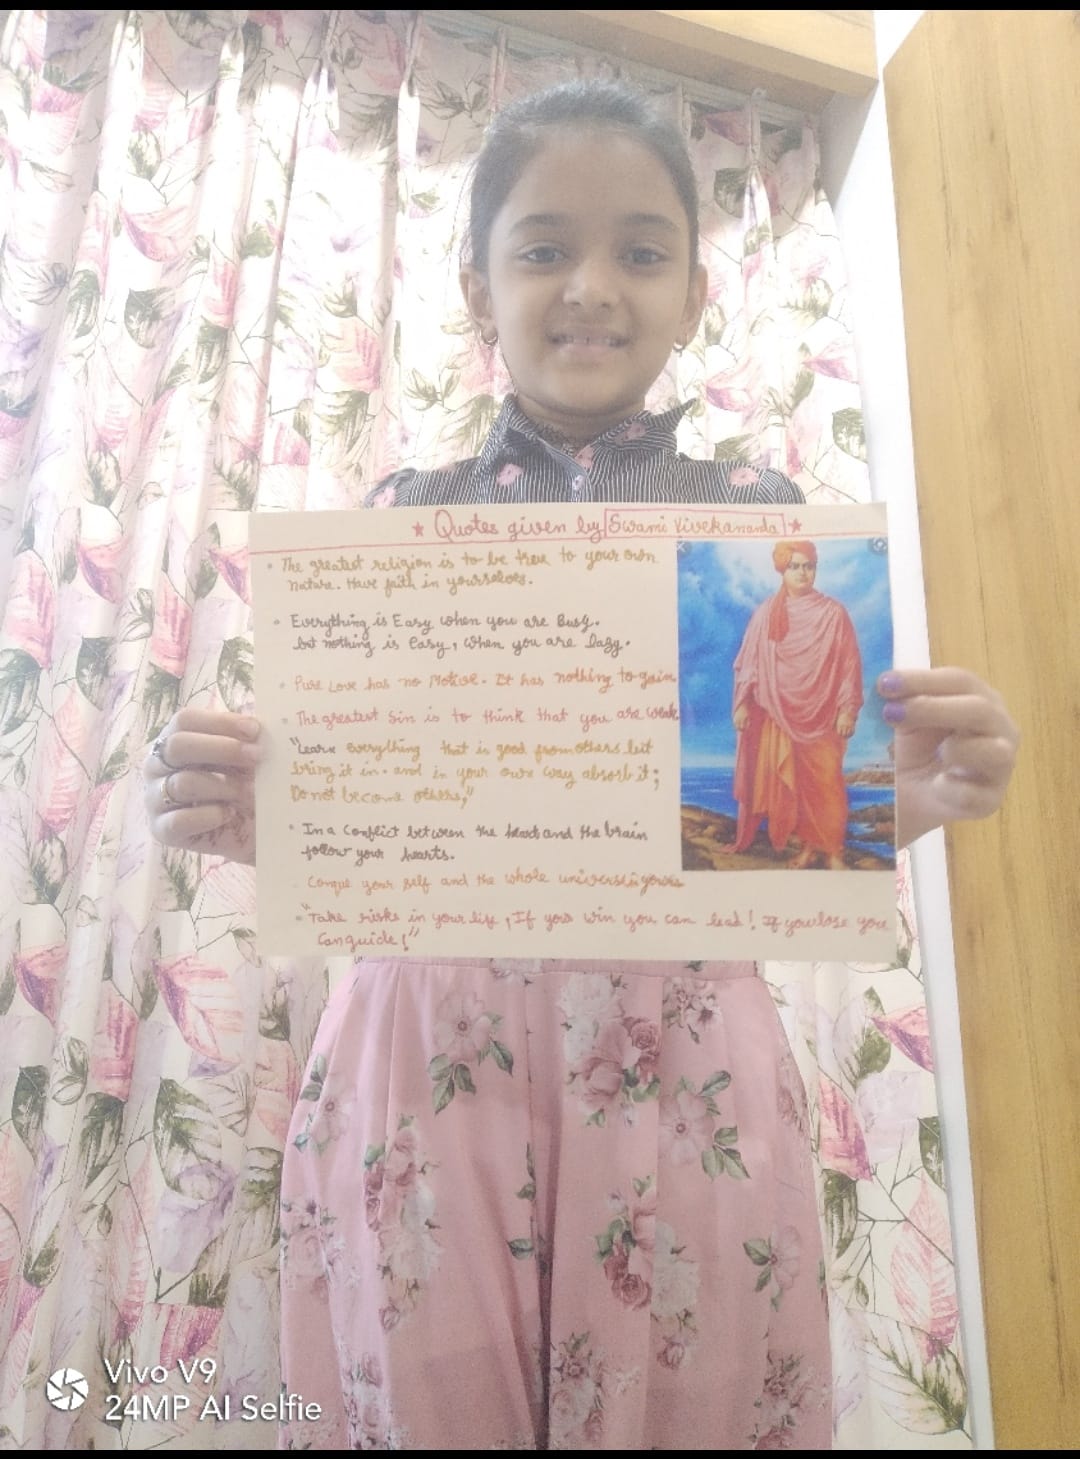 ★ Quotes given by Swami Vivekananda ★
• The greatest religion is to be true to your own
nature. Have faith in yourselves.
• Everything is Easy when you are Busy.
but nothing is Easy, when you are lazy.
• Pure Love has no Motive. It has nothing to gain.
• The greatest Sin is to think that you are weak.
"Learn everything that is good from others but
bring it in. and in your own way absorb it;
Do not become others,"
• In a Conflict between the heart and the brain
follow your hearts.
Conque your self and the whole universe is yours
• "Take risks in your life, If you win you can lead! If you lose you
Can guide!"
Vivo V9
24MP AI Selfie